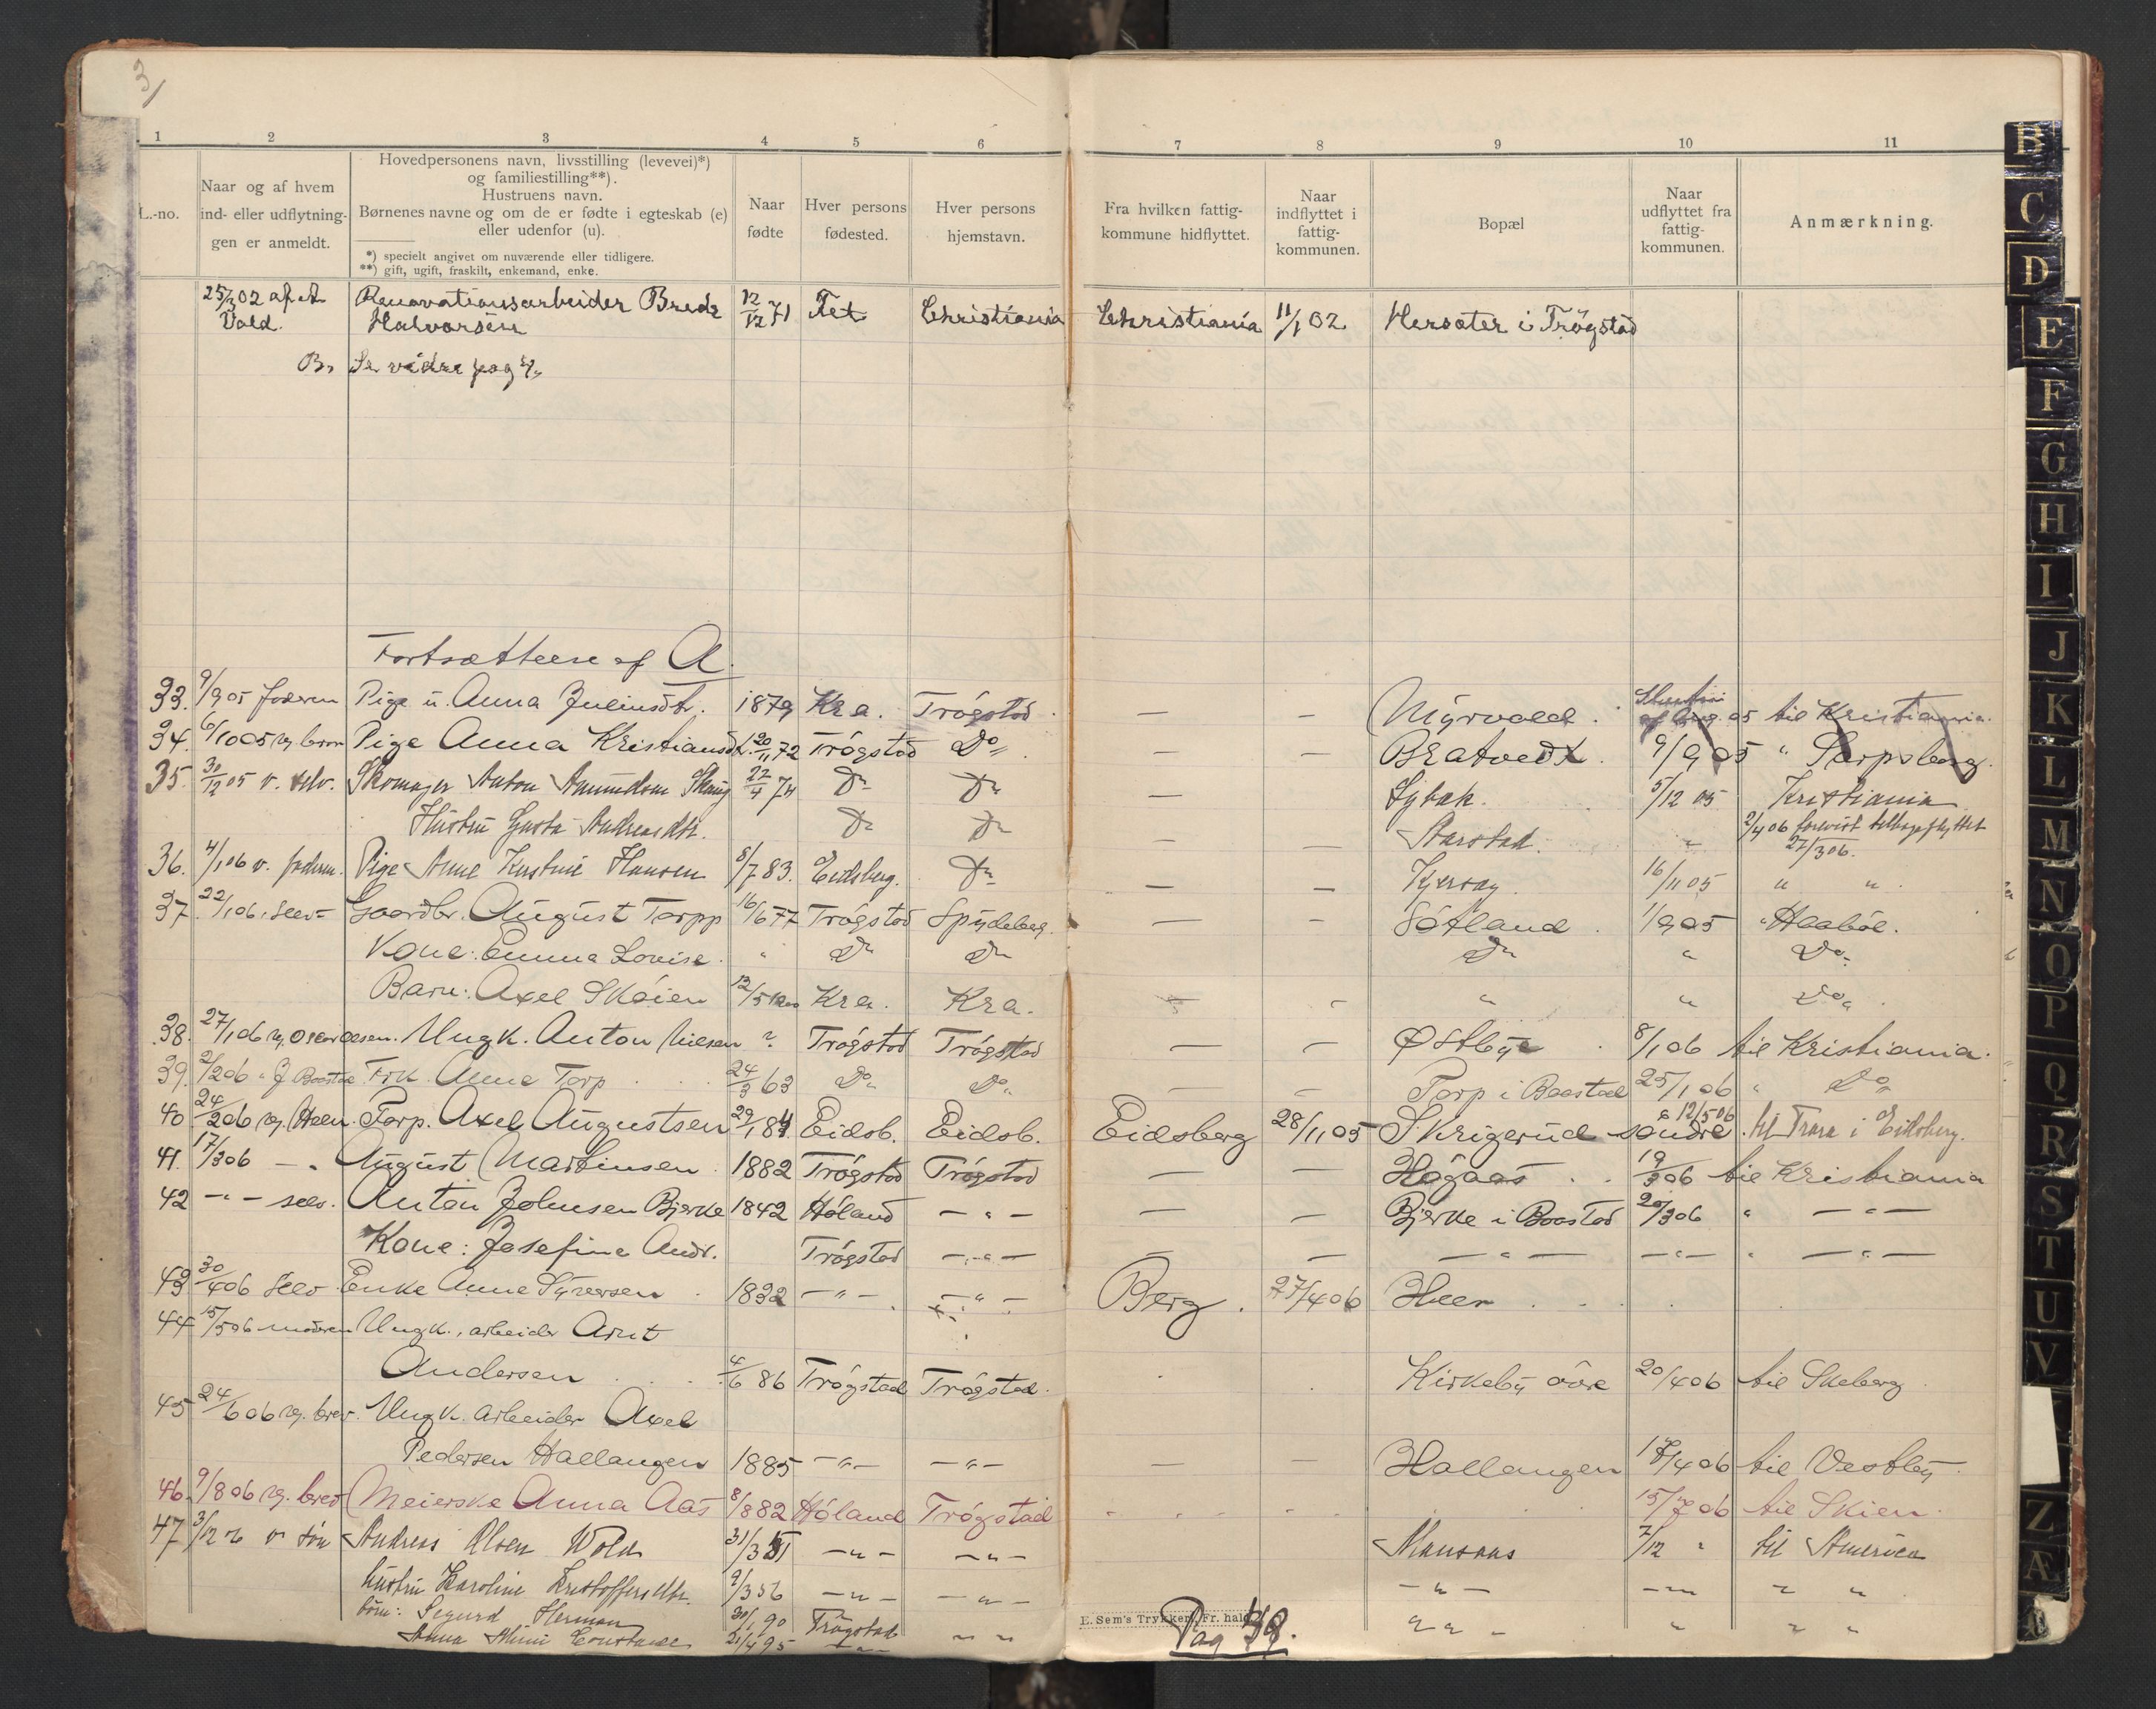 3/
1 2 3 4 5 6 7 8 9 10 11
L.-no.
Naar og af hvem
ind- eller udflytning-
gen er anmeldt.
Hovedpersonens navn, livsstilling (levevei)*)
og familiestilling**).
Hustruens navn.
Børnenes navne og om de er fødte i egteskab (e)
eller udenfor (u).
*) specielt angivet om nuværende eller tidligere.
**) gift, ugift, fraskilt, enkemand, enke.
Naar
fødte
Hver persons
fødested.
Hver persons
hjemstavn.
Fra hvilken fattig-
kommune hidflyttet.
Naar
indflyttet i
fattig-
kommunen.
Bopæl
Naar
udflyttet fra
fattig-
kommunen.
Anmærkning.
25/3 02 af A. Renovationsarbeider Brede 12/12 71 Tet Christiania Christiania 11/1 02 Hersæter i Trøgstad
Vold. Halvorsen
B. Se videre pag 4
Fortsættelse af A.
33. 9/9 05 faderen Pige u. Anna Juliusdtr. 1879 Kra. Trøgstad — — Myrvold. af Aug. 05 til Kristiania.
34. 6/10 05 v. brev Pige Anna Kristiansdt. 20/11 72 Trøgstad Do — — Bratvedt. 9/9 05 " Sarpsborg.
35. 30/12 05 v. selv. Skomager Anton Amundsen Skaug 22/4 74 Do Do — Lybæk. 5/12 05 Kristiania
Hustru Gusta Andreasdtr. Do Do — — Starstad. " 2/4 06 forevist tilbageflyttet
27/3 06.
36. 4/1 06 v. faderen. Pige Anne Kristine Hansen 8/7 83. Eidsberg. Do — — 16/11 05 " "
37. 22/1 06. selv Gaardbr. August Torpp 16/6 77 Trøgstad Spydeberg. — — Søtland. 1/9 05 " Haabøl.
Kone: Emma Lovise. " Do Do Do " Do
Barn: Axel Skøien Kra. Kra. — " " " Do
38. 27/1 06 v. Oscar Olsen. Ungk. Anton Nilsen ? Trøgstad Trøgstad — — Østbye. 8/1 06 til Kristiania.
39. 2/2 06 " J Baastad Frk. Anne Torp 24/3 63 Do Do — — Torp i Baastad 25/1 06 " Do
40 24/2 06 v. Heen. Forp. Axel Augustsen 29/1 84. Eidsb. Eidsb. Eidsberg 28/11 05 Skrigerud søndre 12/5 06 til Trara i Eidsberg.
41. 17/3 06 — " August Martinsen 1882 Trøgstad Trøgstad — — Høgaas 19/3 06 til Kristiania
42 — " — selv. Anton Johnsen Bjerke 1842 Høland — " — — — Bjerke i Baastad 20/3 06 " — " —
Kone: Josefine Andr. Trøgstad — " — — — — " — — " — " — " —
43 30/4 06 selv. Enke Anne Syversen 1832 — " — — " — Berg. 27/4 06 Heen
44 15/5 06 moderen Ungk., arbeider Arnt
Andersen 4/6 86 Trøgstad Trøgstad. Kirkeby øvre 20/4 06 til Skeberg
45 24/6 06 v. brev. Ungk. arbeider Axel
Pedersen Hallangen 1885 — " — — " — — — Hallangen 17/4 06 til Vestby
46. 9/8 06 v. brev Meierske Anna Aas 8/8 82 Høland Trøgstad 15/7 06 til Skien.
47 3/12 " v søn Andreas Olsen Wold 31/3 51 — " — — " — Mansaas 7/12 " til America
hustru Karoline Kristoffersdtr. 9/3 56 — " — — " — — " — — " — " "
børn: Sigurd Herman 30/1 90 Trøgstad " " " " " " " "
Anna Mimi Constance 21/4 95 — " —
E. Sem's Trykkeri, Fr. hald
Pag 38.
B
C
D
E
F
G
H
I
J
K
L
M
N
O
P
Q
R
S
T
U
V
Z
Æ